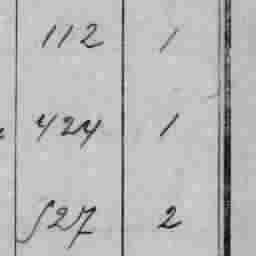 112 1
424 1
527 2